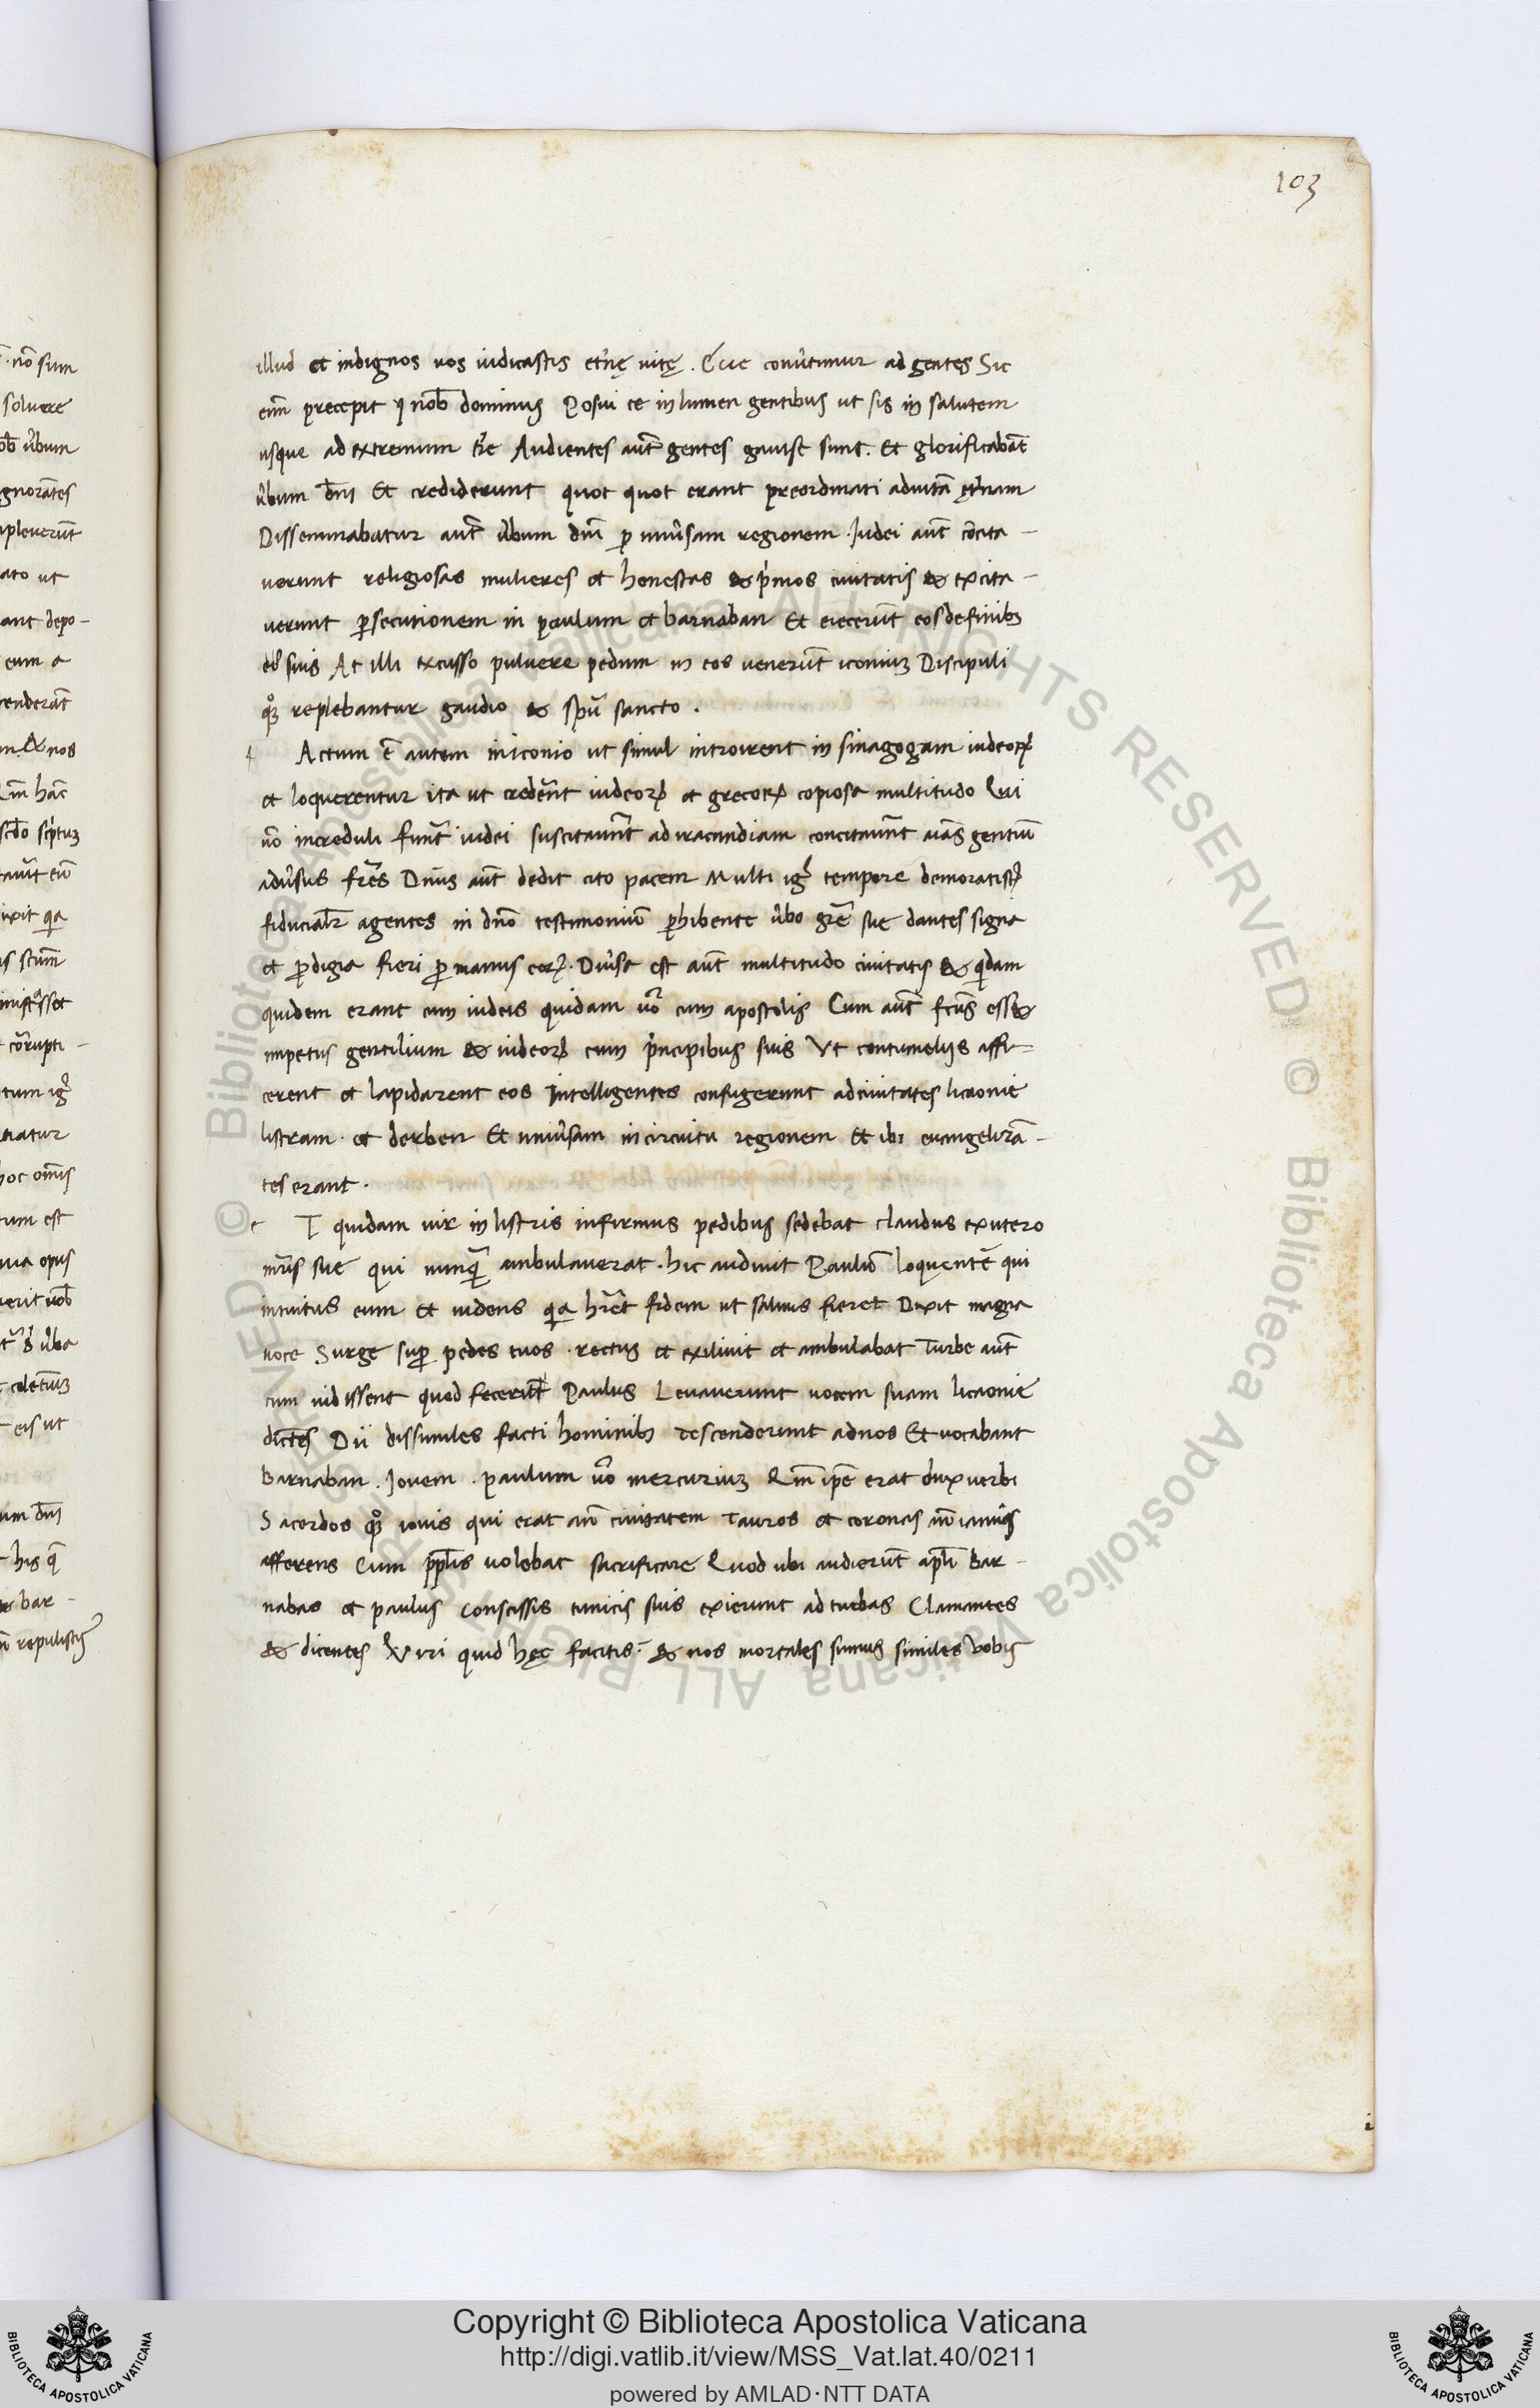 103
illud et indignos uos iudicastis et̾nę uitę . Ecce conu̾timur ad gentes Sic
eni̅ precepit nob̅ dominus Posui te in lumen gentibus ut sis in salutem
usque ad extremum tr̅e Audientes aut̅ gentes gauise sunt . Et glorificaba̅t
u̾bum dn̅i Et crediderunt quot quot erant preordinati ad uita̅ ęt̾nam
Disseminabatur aut̅ u̾bum dn̅i ꝑ uniu̾sam regionem . Iudei aut̅ co̅cita -
uerunt religiosas mulieres et honestas & p̾mos ciuitatis & excita -
uerunt ꝑsecutionem in paulum et barnaban Et eiecerūt eos de finibꝫ
suis At illi excusso puluere pedum in eos uenerūt iconiuꝫ Discipuli
qꝫ replebantur gaudio & spū sancto .
Actum ē autem in iconio ut simul introirent in sinagogam iudeoꝝ
et loquerentur ita ut crederēt iudeoꝝ et grecoꝝ copiosa multitudo Qui
uō increduli fuer̅t iudei suscitauer̅t ad iracundiam concitauer̅t aīas gentiū
adu̾sus fr̅es Dn̅s aut̅ dedit cito pacem Multo igr̅ tempore demorati sꝫ
fiducialr̅ agentes in dn̅o testimoniū ꝑhibente u̾bo gr̅e sue dantes signa
et ꝓdigia fieri ꝑ manus eoꝝ . Diuisa est aut̅ multitudo ciuitatis & qidam
quidem erant cum iudeis quidam uō cum apostolis Cum aut̅ fc̅us esset
impetus gentilium & iudeoꝝ cum p̾ncipibus suis Vt contumelijs affi -
cerent et lapidarent eos Intelligentes confugerunt ad ciuitates licaonie
listram . et derben Et uniu̾sam in circuitu regionem Et ibi euangelizā -
tes erant .
T quidam uir in listris infirmus pedibus sedebat claudus ex utero
mr̅is sue qui nunq̅ ambulauerat . hic audiuit Paulū loquentē qui
intuitus eum et uidens qia hr̅et fidem ut saluus fieret Dixit magna
uoce Surge suꝑ pedes tuos . rectus et exiliuit et ambulabat Turbe aut̅
cum uidissent quod fecerat Paulus Leuauerunt uocem suam licaonie
dice̅tes Dii dissimiles facti hominibꝫ descenderunt ad nos Et uocabant
Barnaban . Iouem . paulum uō mercuriuꝫ Qm̅ ip̅e erat dux uerbi
Sacerdos qꝫ iouis qui erat an̅ ciuitatem Tauros et coronas an̅ ianuas
afferens Cum pp̅lis uolebat sacrificare Quod ubi audierūt apl̅i Bar -
nabas et paulus conscissis tunicis suis exierunt ad turbas Clamantes
& dicentes Viri quid hęc facitis . & nos mortales sumus similes uobis
Copyright © Biblioteca Apostolica Vaticana
http://digi.vatlib.it/view/MSS_Vat.lat.40/0211
powered by AMLAD·NTT DATA
BIBLIOTECA APOSTOLICA VATICANA
BIBLIOTECA APOSTOLICA VATICANA